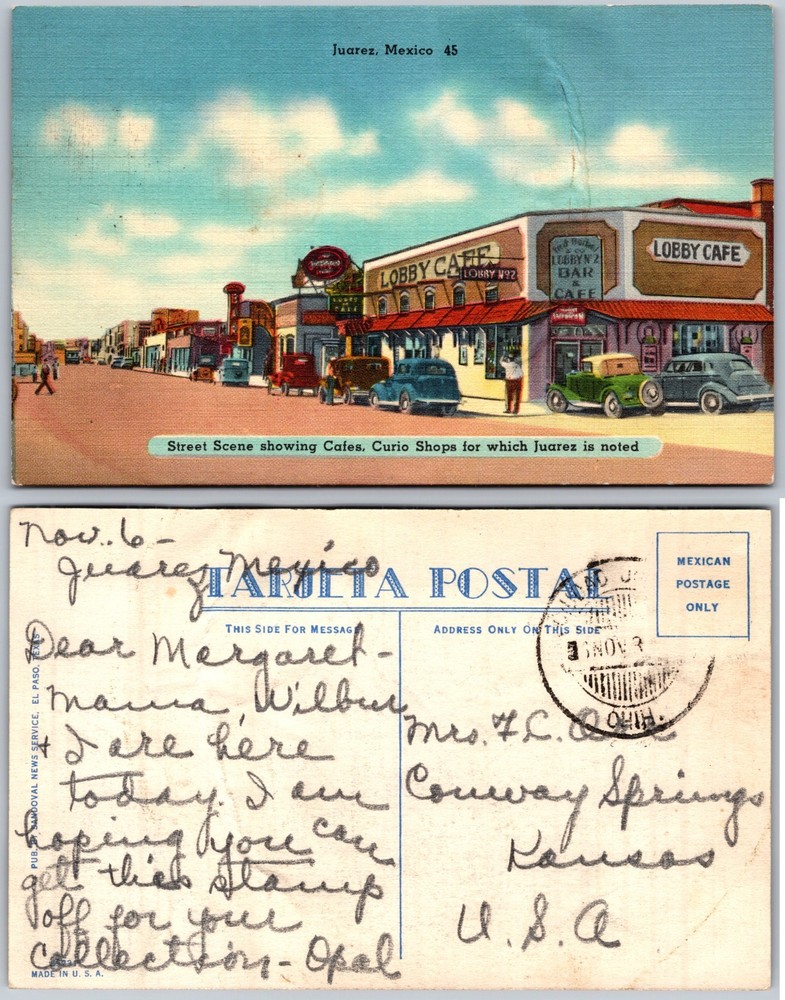 Juarez, Mexico 45
LOBBY CAFE
LOBBY Nº2
LOBBY Nº2
BAR
&
CAFE
LOBBY CAFE
CAFE
Street Scene showing Cafes, Curio Shops for which Juarez is noted
Nov. 6 -
Juarez, Mexico
TARJETA POSTAL
THIS SIDE FOR MESSAGE
ADDRESS ONLY ON THIS SIDE
MEXICAN
POSTAGE
ONLY
NOV 3
Dear Margaret -
Mama, Wilbur
+ I are here
today. I am
hoping you can
get this stamp
off for your
collection - Opal
Mrs. F. C.
Conway Springs
Kansas
U. S. A
PUB. BY SANDOVAL NEWS SERVICE, EL PASO, TEXAS
MADE IN U. S. A.